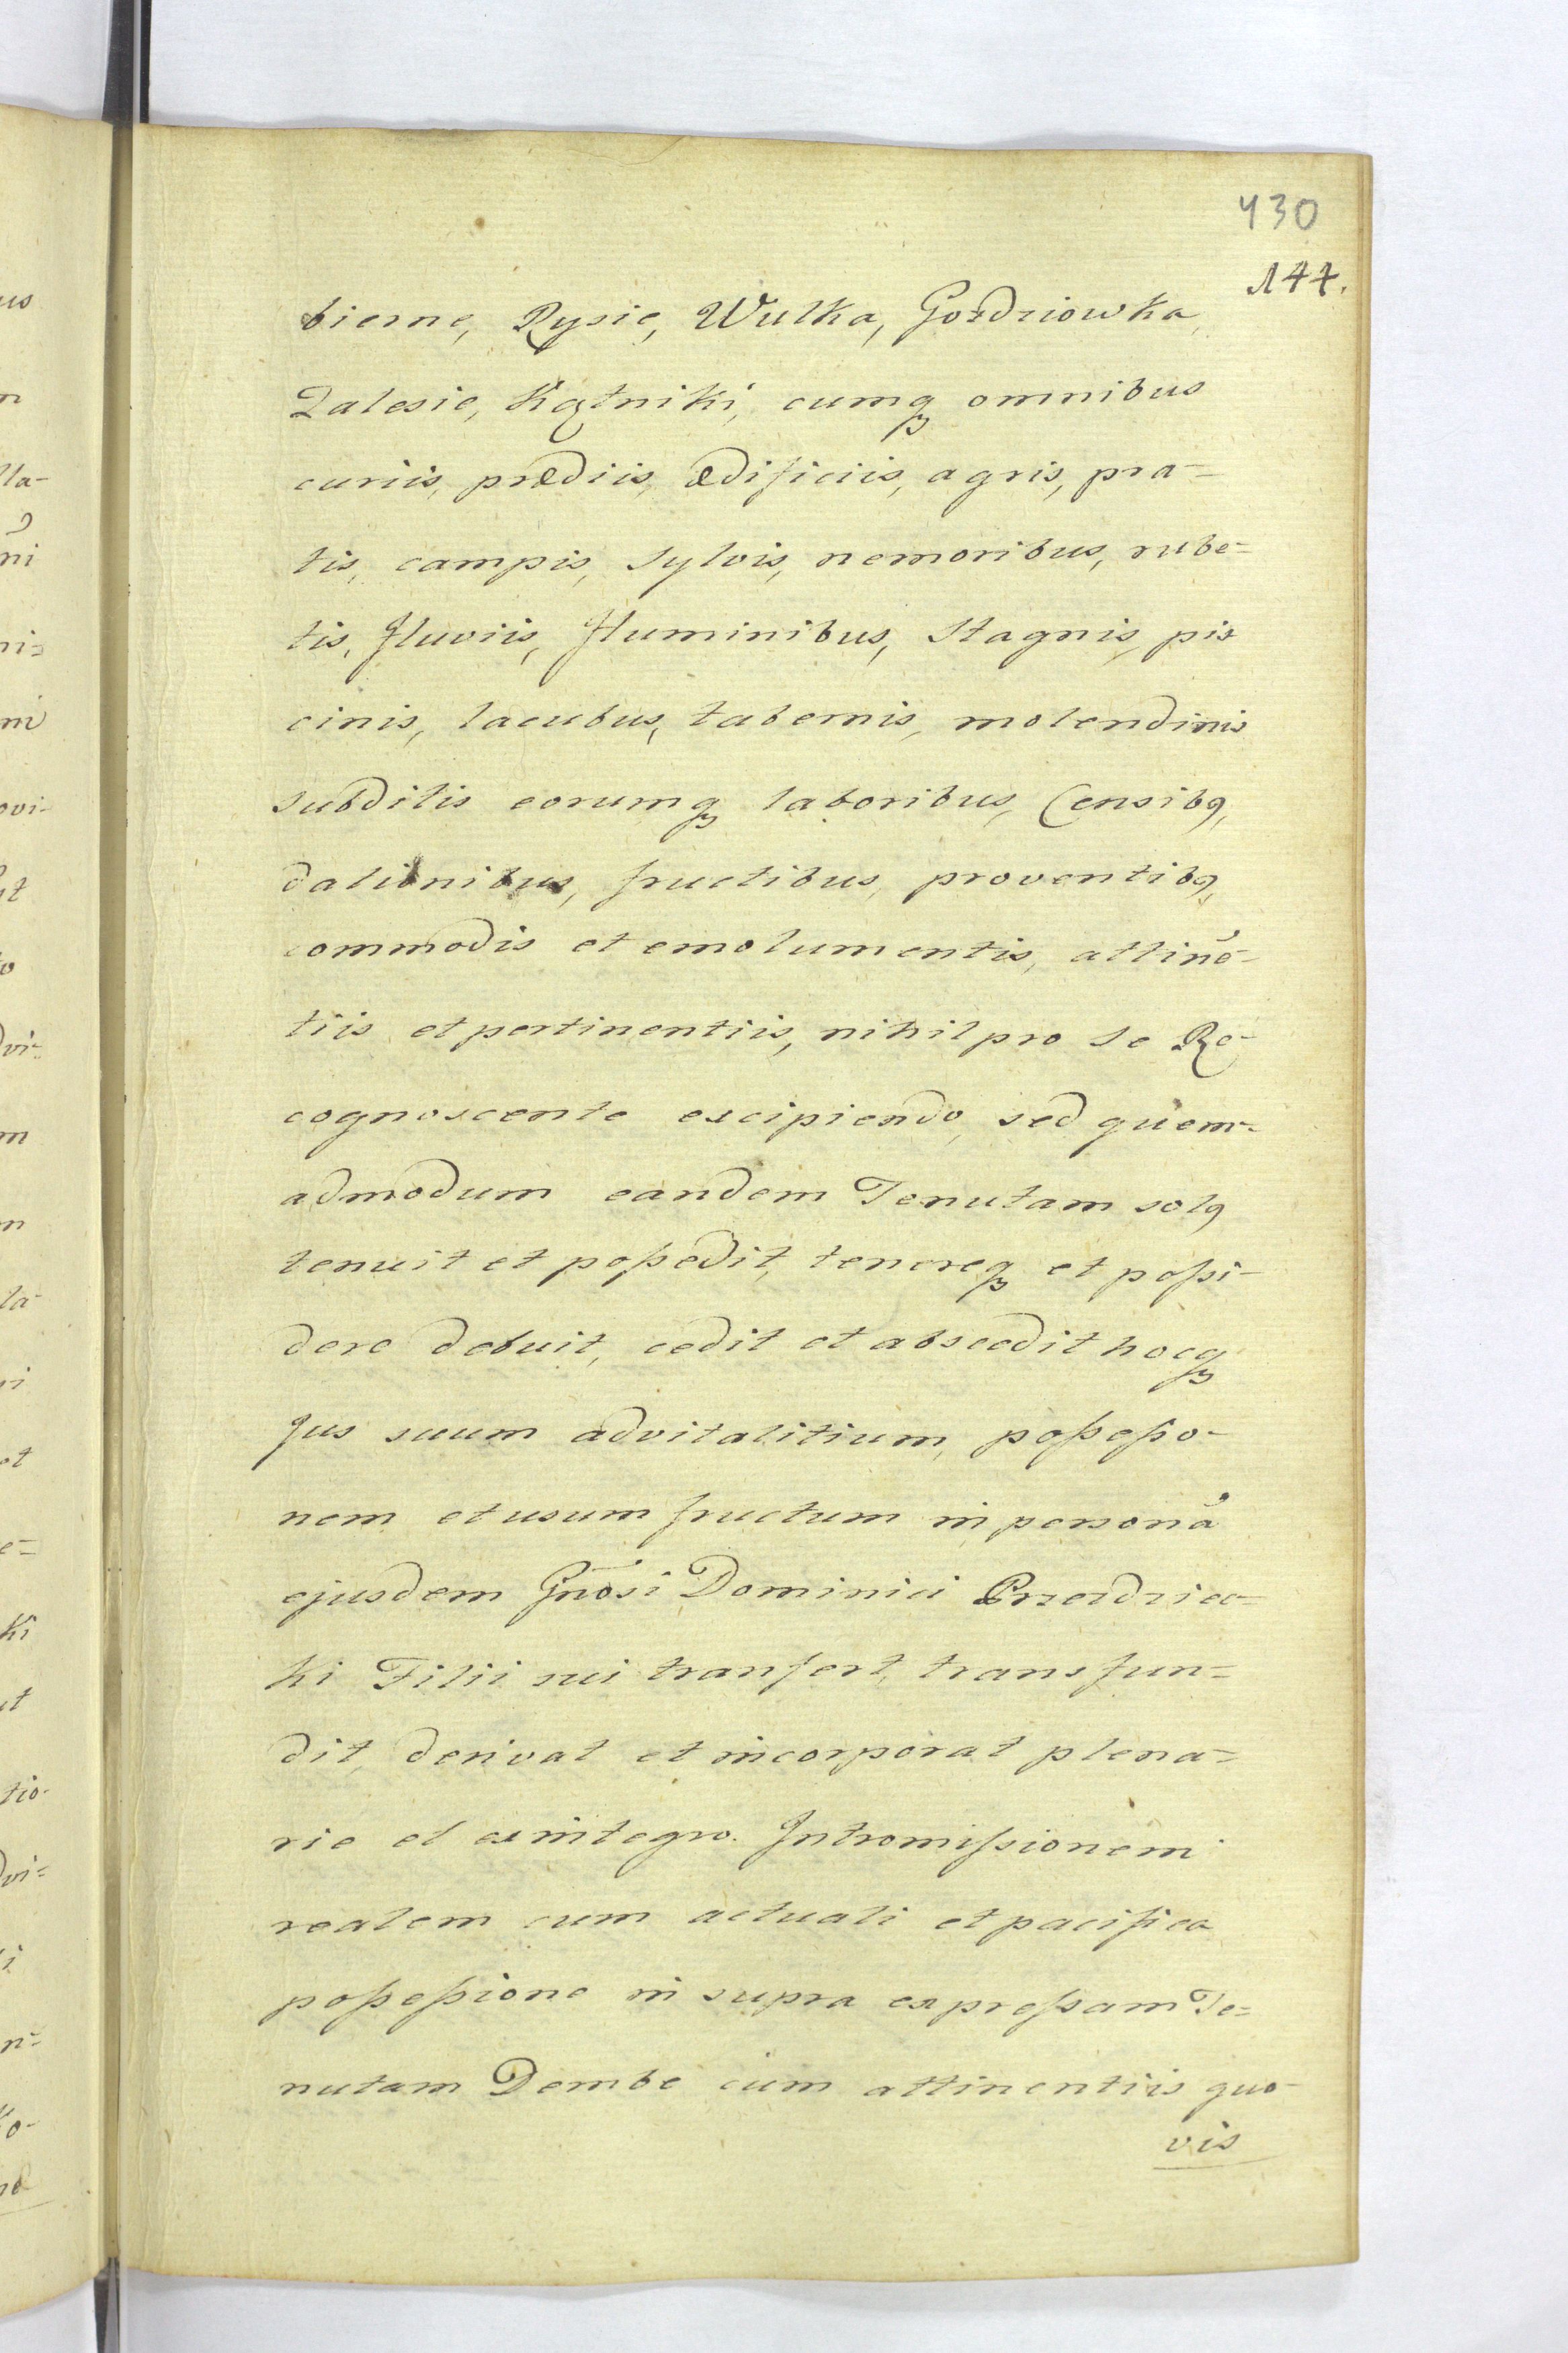 430
144.
bierne, Rysie, Wulka, Gozdziowka,
Zalesie, Kątniki, cumq₃ omnibus
curiis, prædiis, ædificiis, agris, pra-
tis, campis, sylvis, nemoribus, rube-
tis, fluviis, fluminibus, stagnis, pis
cinis, lacubus, tabernis, molendinis
subditis eorumq₃ laboribus, Censibꝰ,
dationibus, fructibus, proventibꝰ,
commodis et emolumentis, attinē-
tiis et pertinentiis, nihil pro se Re-
cognoscente excipiendo, sed quem-
admodum eandem Tenutam solꝰ
tenuit et poßedit, tenereq₃ et poßi-
dere debuit, cedit et abscedit hocq₃
Jus suum advitalitium, poßeßio-
nem et usum fructum in personā
ejusdem Gnōsi Dominici Przezdziec-
ki Filii sui tranfert, transfun-
dit, derivat et incorporat plena-
rie et ex integro. Intromißionem
realem cum actuali et pacifica
poßeßione in supra expreßam Te-
nutam Dembe cum attinentiis quo-
vis